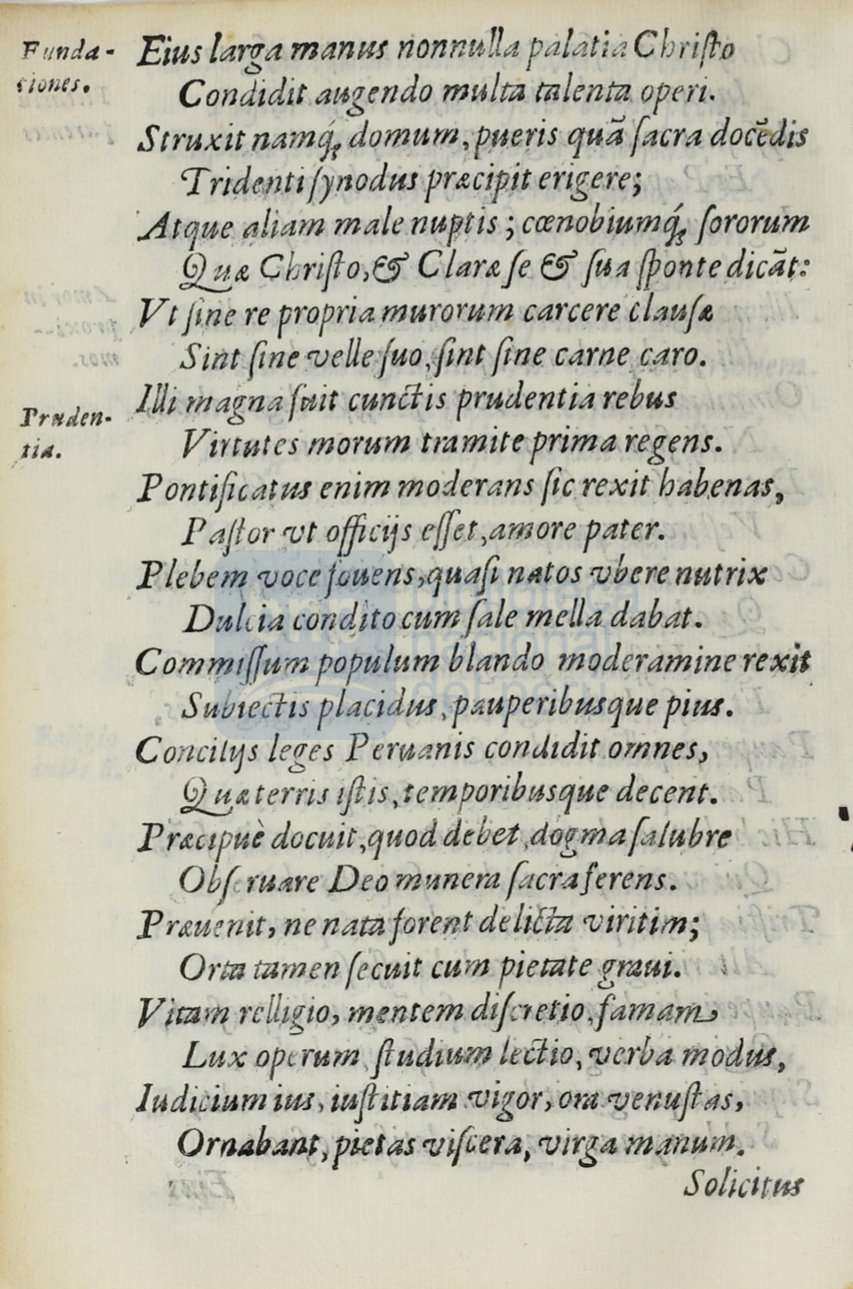 Funda-
tiones.
Eius larga manus nonnulla palatia Chriſto
Condidit augendo multa talenta operi.
Struxit namq́ꝫ domum, pueris quã ſacra docẽdis
Tridenti ſynodus præcipit erigere;
Atque aliam male nuptis; cœnobiumq́ꝫ ſororum
Quæ Chriſto, & Claræ ſe & ſua ſponte dicãt:
Vt ſine re propria murorum carcere clauſæ
Sint ſine velle ſuo, ſint ſine carne caro.
Pruden-
tia.
Illi magna fuit cunctis prudentia rebus
Virtutes morum tramite prima regens.
Pontificatus enim moderans ſic rexit habenas,
Paſtor vt officijs eſſet, amore pater.
Plebem voce fouens, quaſi natos vbere nutrix
Dulcia condito cum ſale mella dabat.
Commiſſum populum blando moderamine rexit
Subiectis placidus, pauperibusque pius.
Concilijs leges Peruanis condidit omnes,
Quæ terris iſtis, temporibusque decent.
Præcipuè docuit, quod debet, dogma ſalubre
Obſeruare Deo munera ſacra ferens.
Præuenit, ne nata forent delicta viritim;
Orta tamen ſecuit cum pietate graui.
Vitam relligio, mentem diſcretio, famam
Lux operum, ſtudium lectio, verba modus,
Iudicium ius, iuſtitiam vigor, ora venuſtas,
Ornabant, pietas viſcera, virga manum.
Solicitus